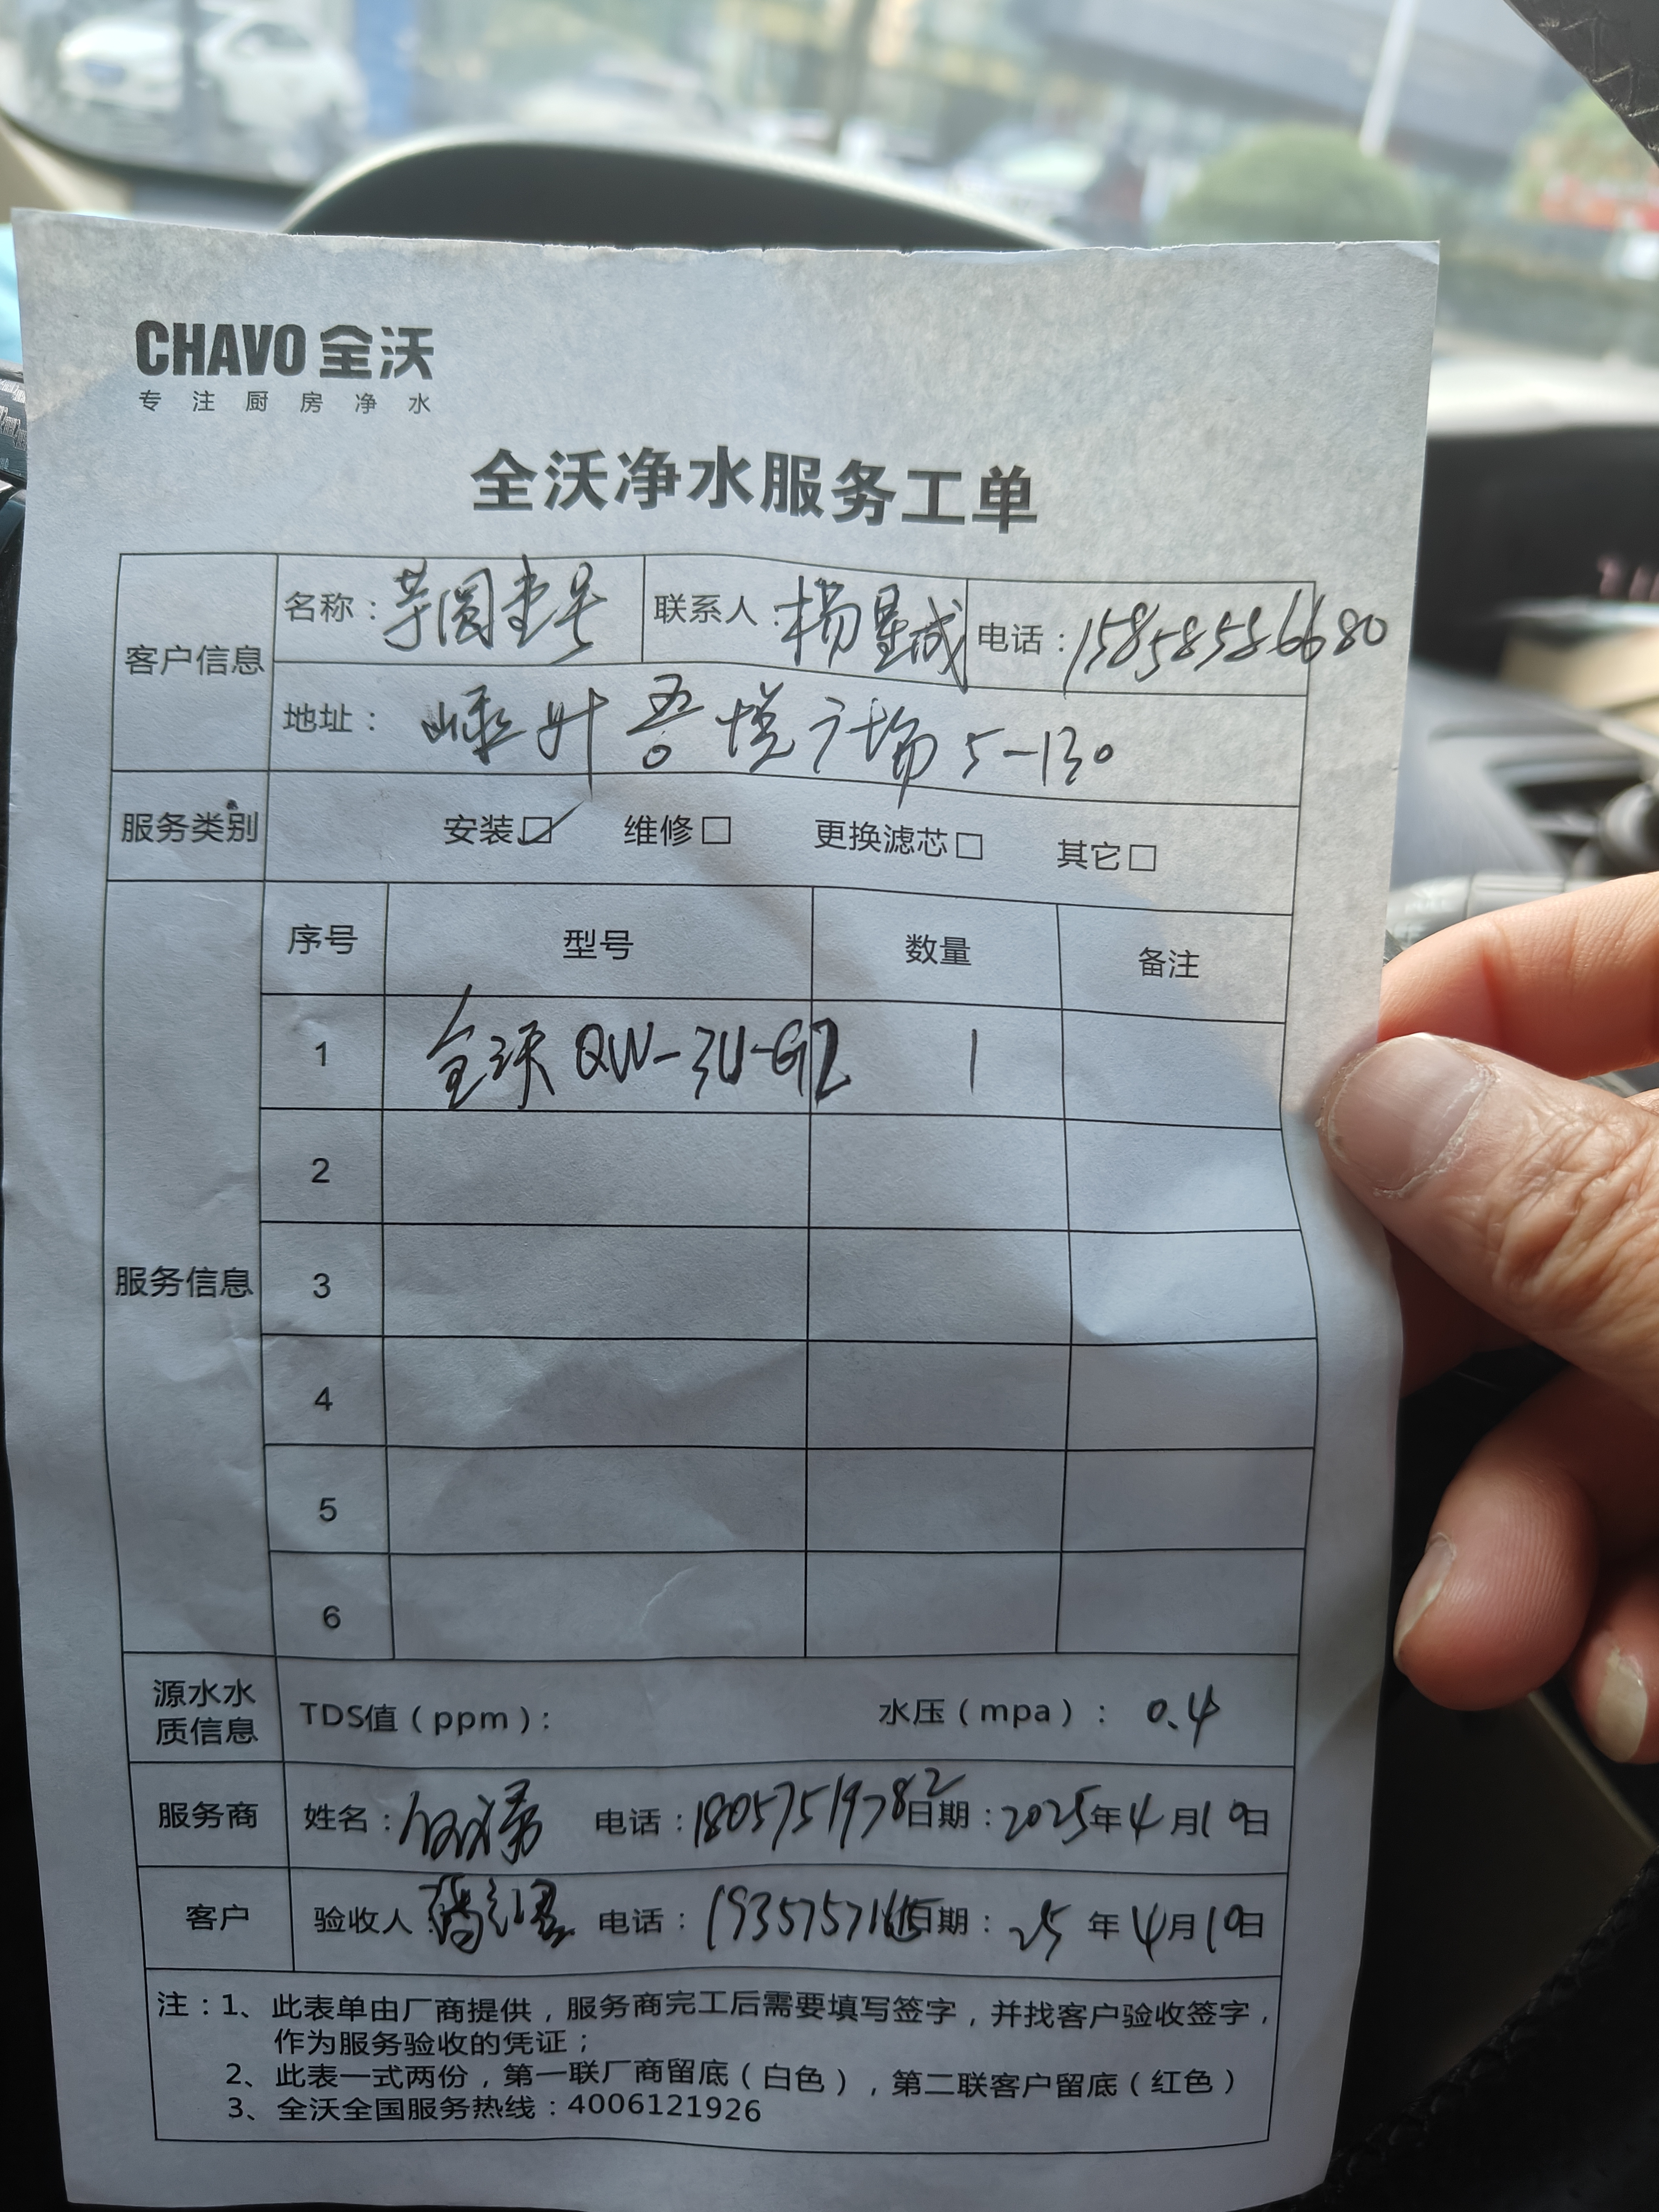 CHAVO 全沃
专注厨房净水
全沃净水服务工单
客户信息 名称：芋圆壹号 联系人：杨星城 电话：15858586680
地址：嵊州吾悦广场5-130
服务类别 安装☑ 维修□ 更换滤芯□ 其它□
服务信息
序号 型号 数量 备注
1 全沃 QW-3U-G2 1
2
3
4
5
6
源水水质信息 TDS值（ppm）： 水压（mpa）：0.4
服务商 姓名： 电话：18057519782 日期：2025年4月10日
客户 验收人： 电话： 日期：25年4月10日
注：1、此表单由厂商提供，服务商完工后需要填写签字，并找客户验收签字，
作为服务验收的凭证；
2、此表一式两份，第一联厂商留底（白色），第二联客户留底（红色）
3、全沃全国服务热线：4006121926